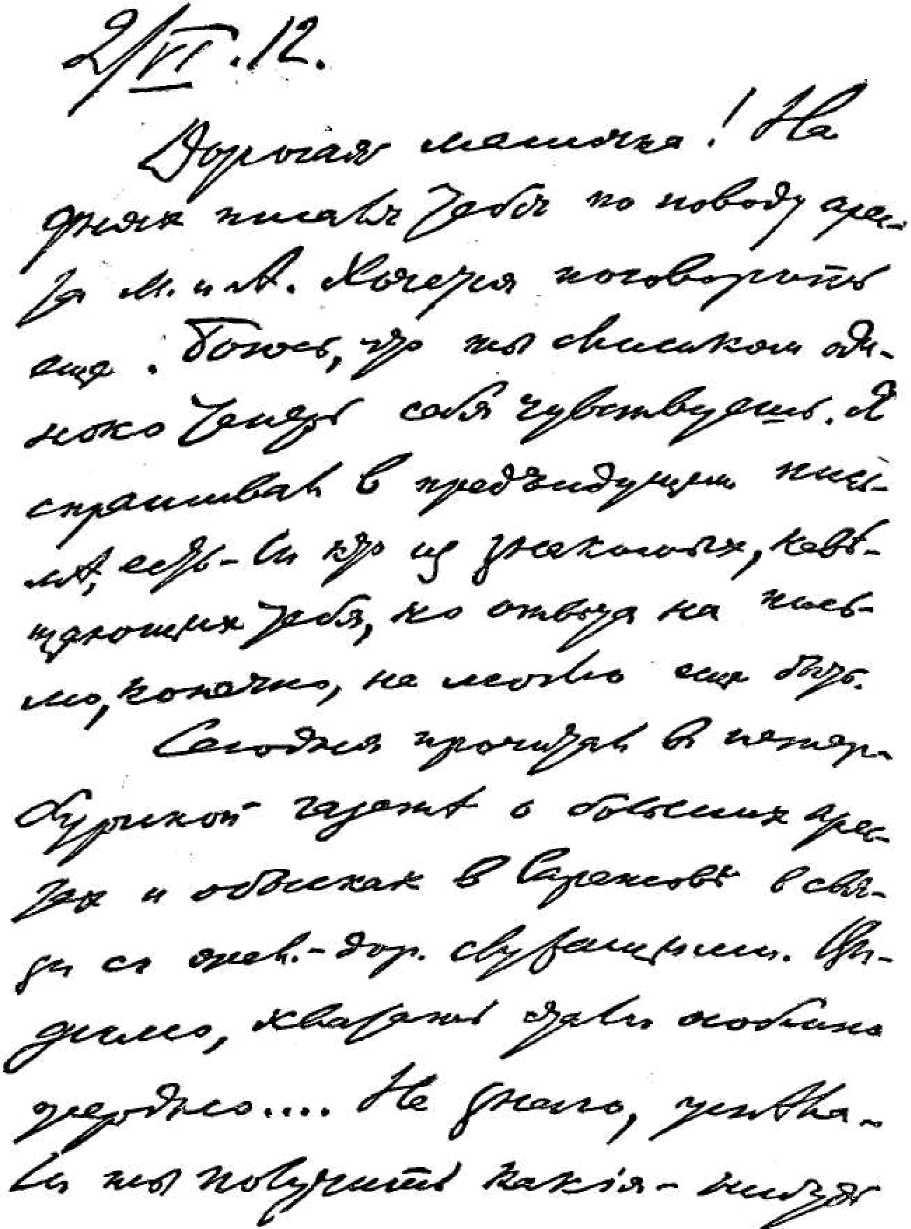 2/VI.12.
Дорогая мамочка! На
днях писалъ тебѣ по поводу арес-
та М. и А. Хочется поговорить
еще. Боюсь, что ты слишком оди-
ноко теперь себя чувствуешь. Я
спрашивал в предъидущем пись-
мѣ, есть-ли кто из знакомых, навѣ-
щающих тебя, но отвѣта на пись-
мо, конечно, не могло еще быть.
Сегодня прочитал в петер-
бургской газетѣ о больших арес-
тах и обысках в Саратовѣ в свя-
зи съ жел.-дор. служащими. Ви-
димо, хватать стали особенно
усердно.... Не знаю, успѣла-
ли ты получить какія-нибудь